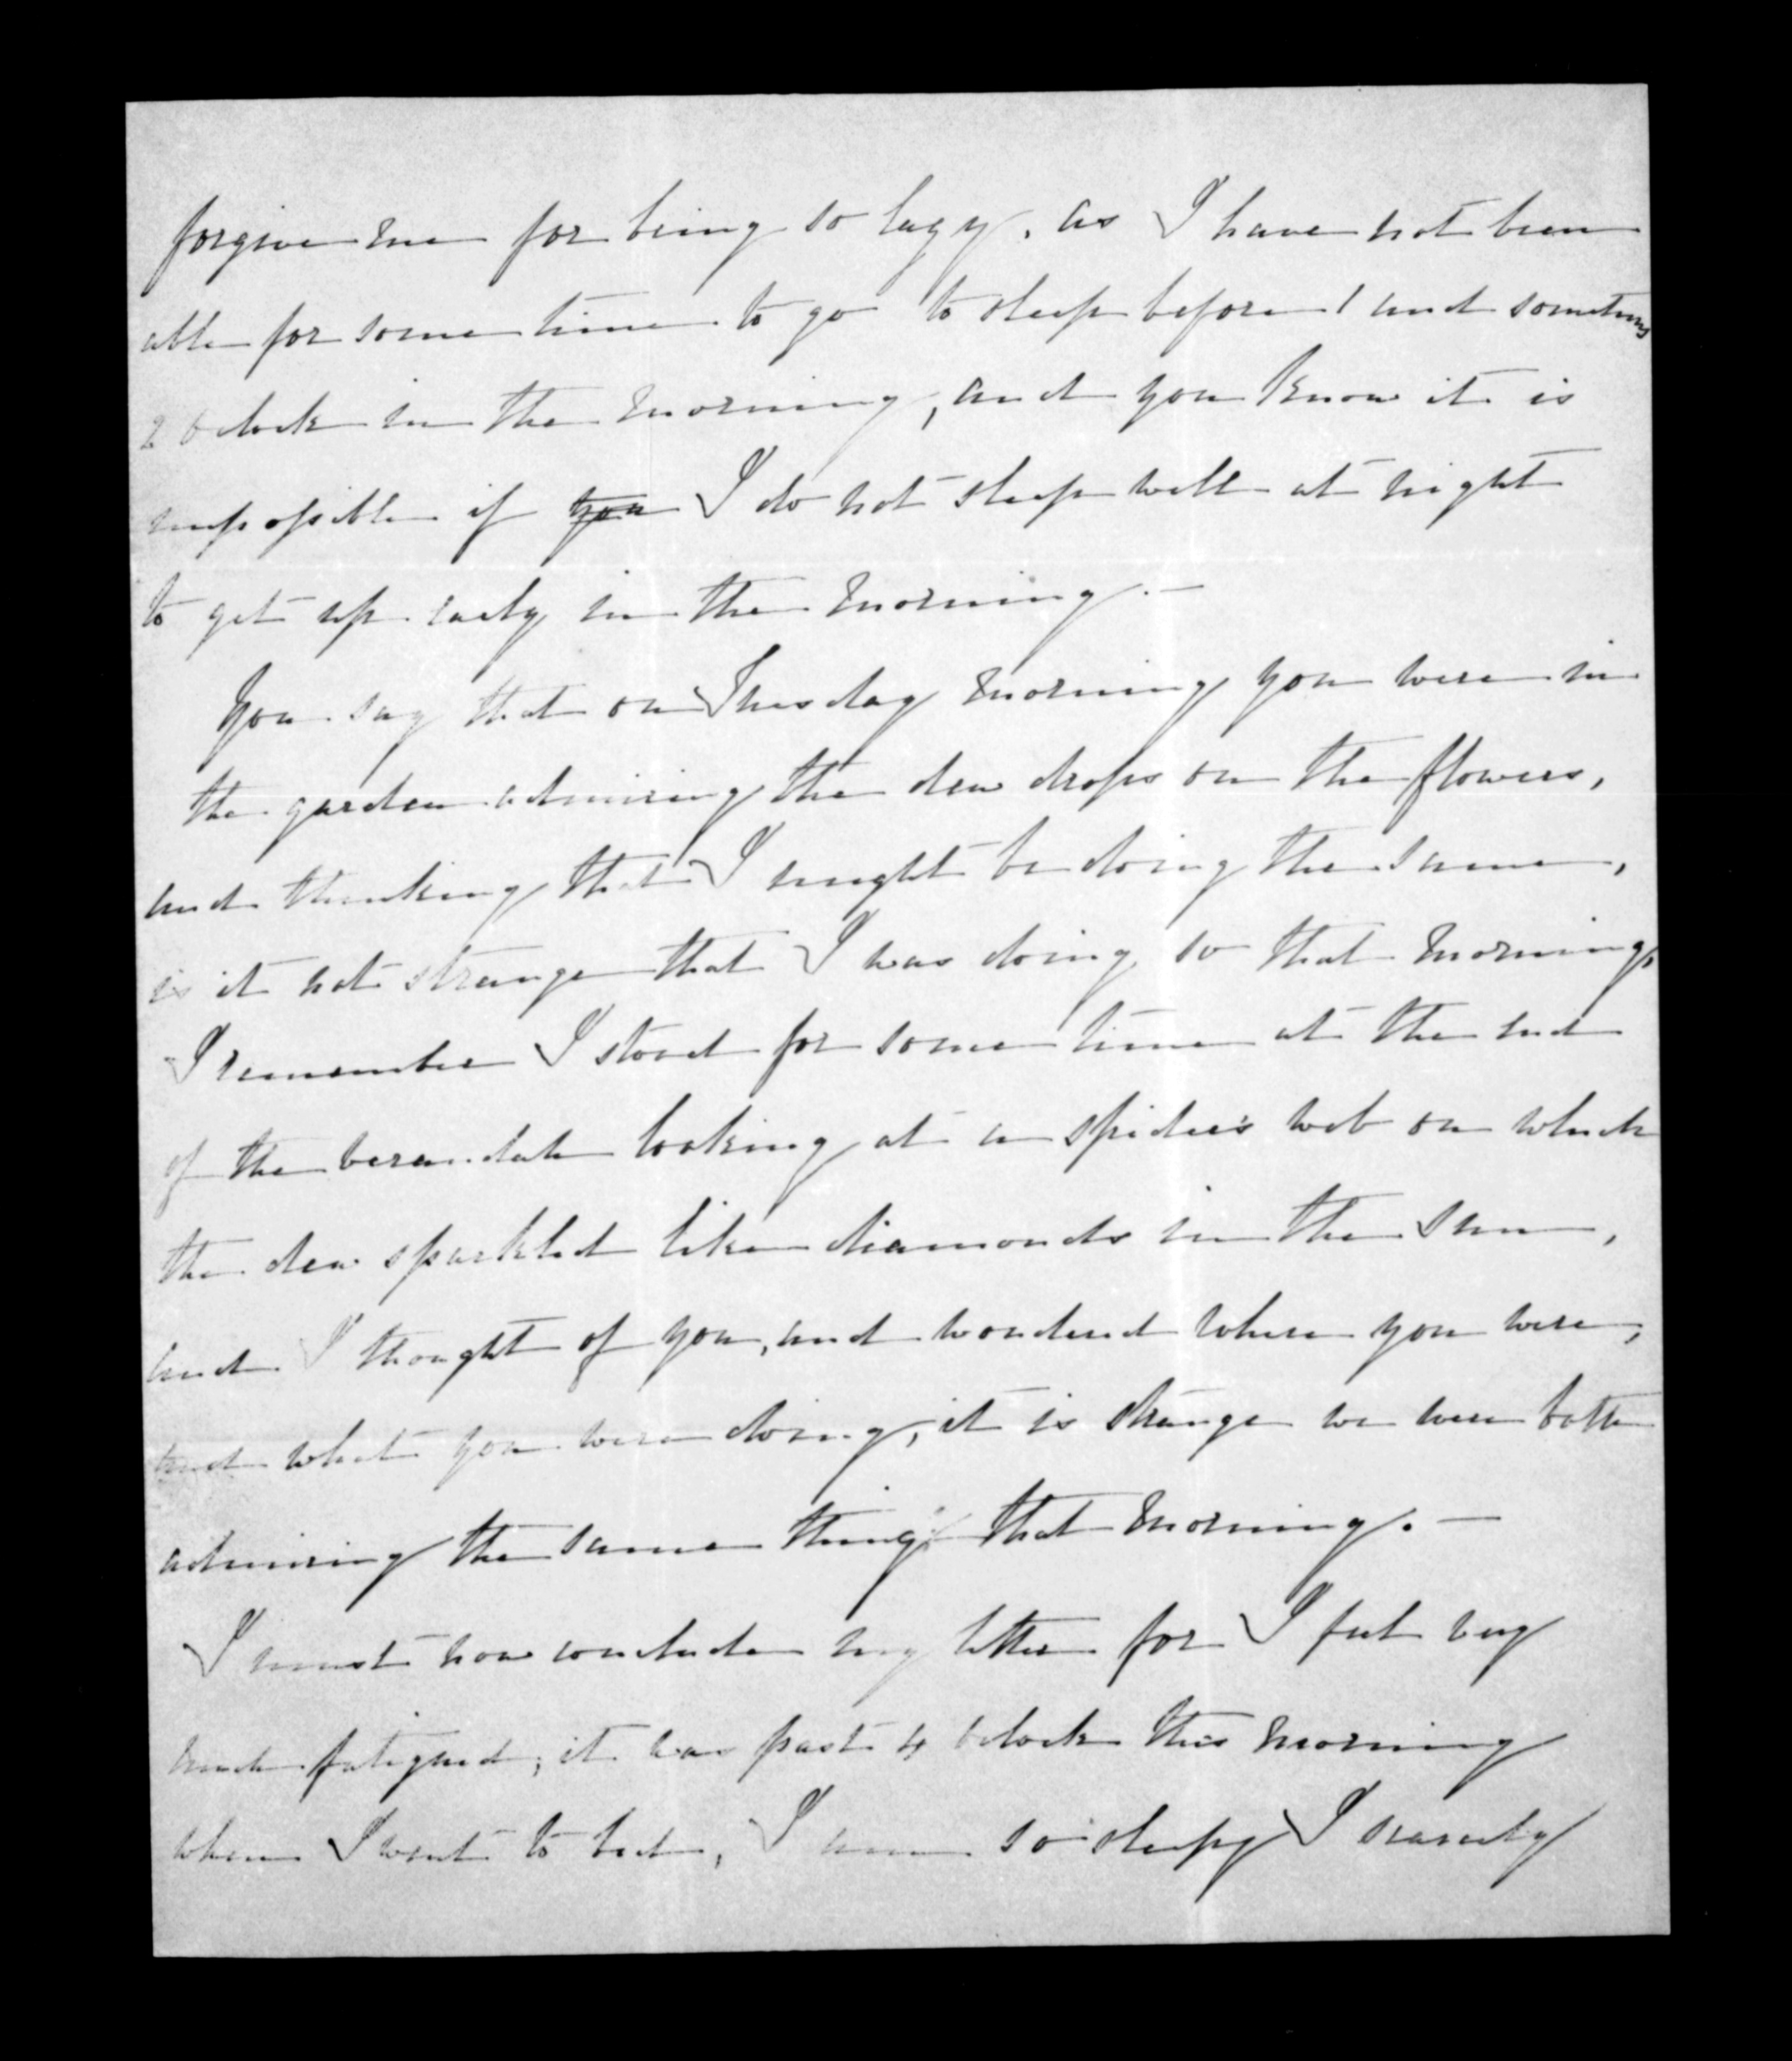 forgive me for being so lazy, as I have not been
able for some time to go to sleep before 1 and sometimes
2 oclock in the morning, and you know it is
impossible if you I do not sleep well at night
to get up early in the morning. —
You say that on Tuesday morning you were in
the garden admiring the dew drops on the flowers,
and thinking that I might be doing the same,
is it not strange that I was doing so that morning,
I remember I stood for some time at the end
of the verandah looking at a spider's web on which
the dew sparkled like diamonds in the sun,
and I thought of you, and wondered where you were,
and what you were doing, it is strange we were both
admiring the same thing that morning. —
I must now conclude my letter for I feel very
much fatigued; it was past 4 oclock this morning
when I went to bed, I am so sleepy I scarcely